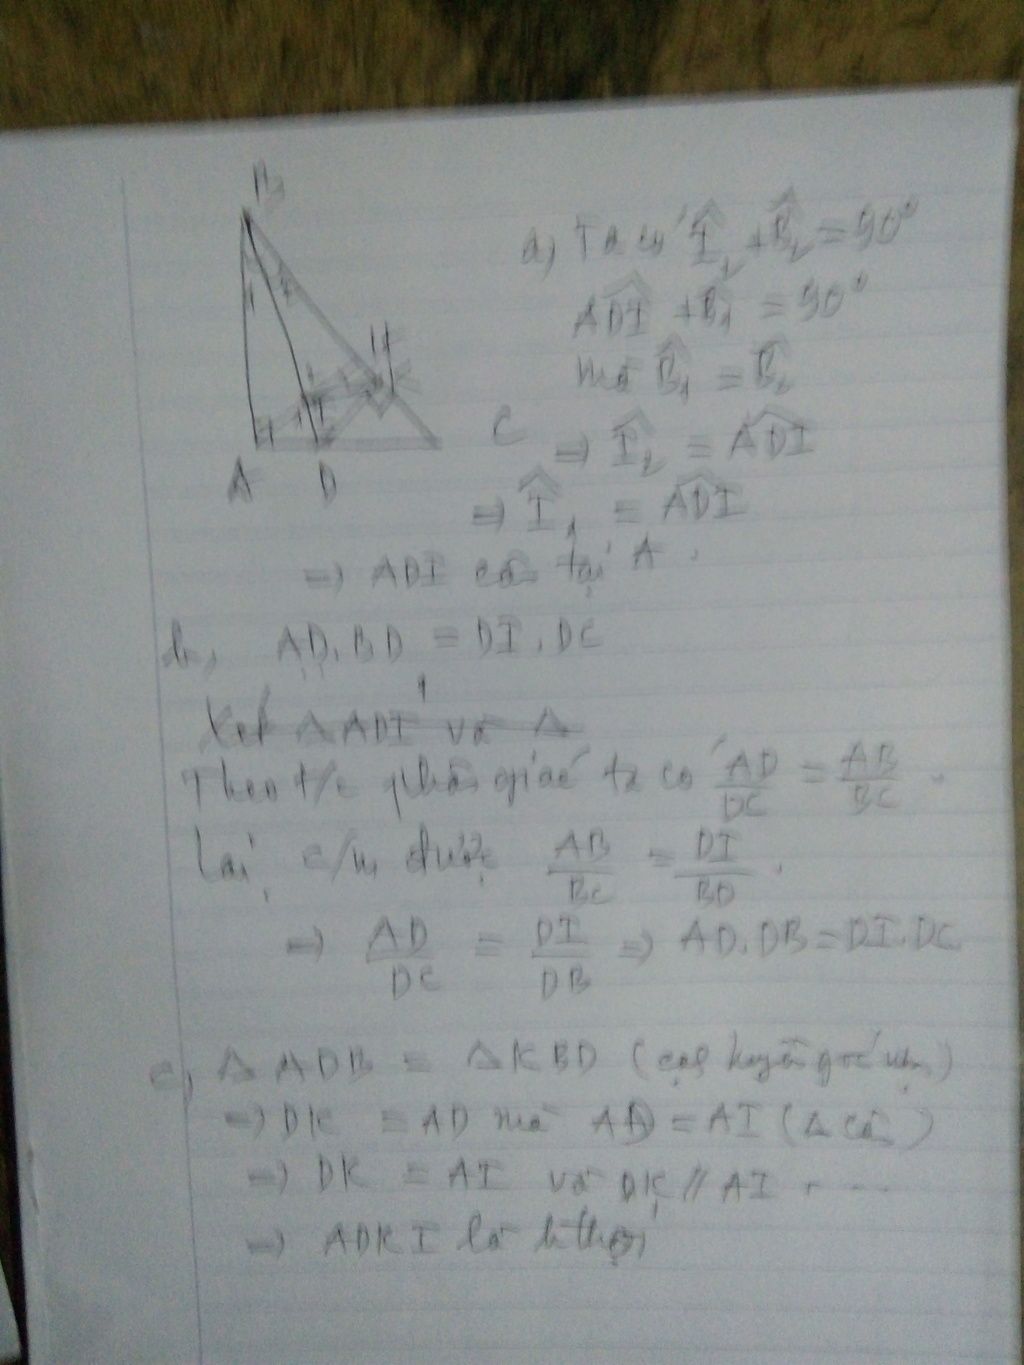 B
H
I
A D C
a, Ta có Î₂ + B̂₂ = 90°
ADI + B̂₁ = 90°
mà B̂₁ = B̂₂
=> Î₂ = ADI
=> Î₁ = ADI
=> ADI cân tại A.
b, AD.BD = DI.DC
Xét △ADI và △
Theo t/c phân giác ta có AD/DC = AB/BC.
Lại c/m được AB/BC = DI/BD.
=> AD/DC = DI/DB => AD.DB = DI.DC
c, △ADB = △KBD (cạnh huyền góc nhọn)
=> DK = AD mà AD = AI (△ cân)
=> DK = AI và DK // AI ....
=> ADKI là h.thoi